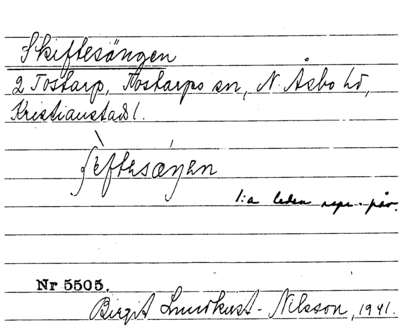 Skiftesängen
2 Tostarp, Tostarps sn, N. Åsbo hd,
Kristianstads l.
ʃèftesæŋen
1:a leden
Nr 5505.
Birgit Lundkvist-Nilsson, 1941.